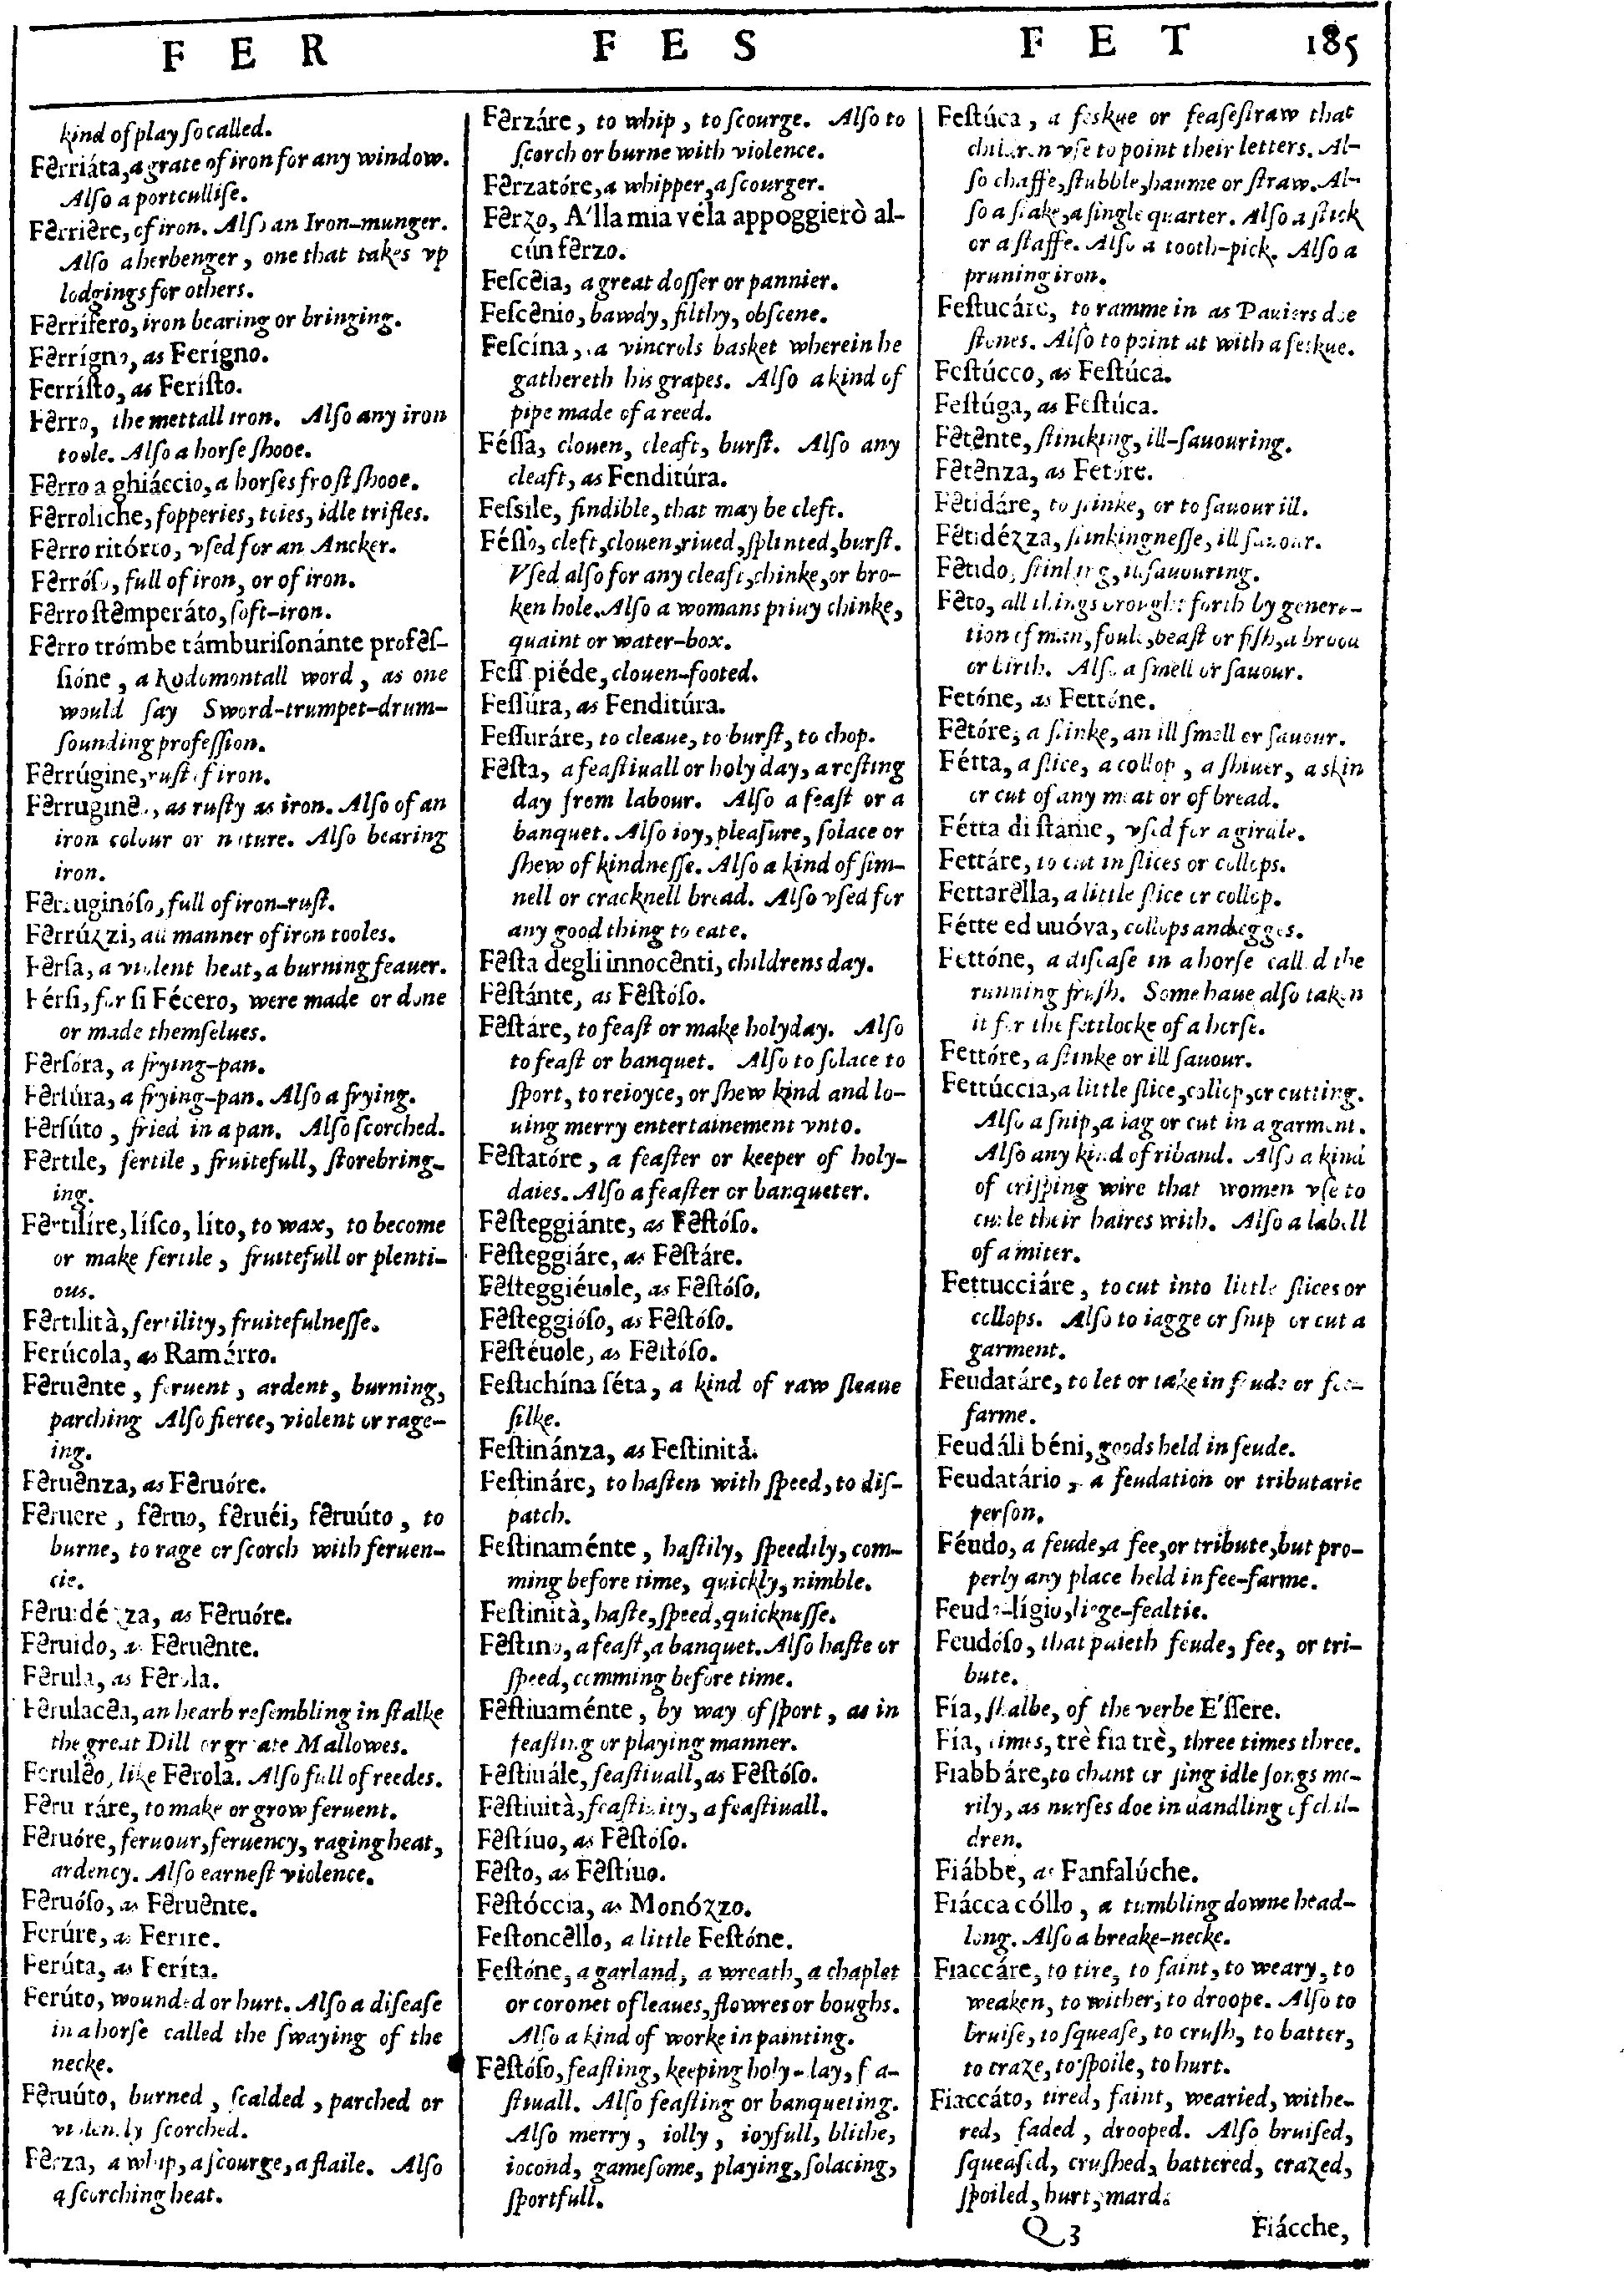 F E R F E S F E T 185
kind of play ſo called.
Fẽrriáta, a grate of iron for any window.
Alſo a portcullife.
Fẽrriẽre, of iron. Alſo an Iron-munger.
Alſo a herbenger, one that takes vp
lodgings for others.
Fẽrrífero, iron bearing or bringing.
Fẽrrígno, as Ferígno.
Ferríſto, as Feríſto.
Fẽrro, the mettall iron. Alſo any iron
toole. Alſo a horſe ſhooe.
Fẽrro a ghiáccio, a horſes froſt ſhooe.
Fẽrrolíche, fopperies, toies, idle trifles.
Fẽrro ritórto, vſed for an Ancker.
Fẽrróſo, full of iron, or of iron.
Fẽrro ſtẽmperáto, ſoft-iron.
Fẽrro trómbe támburiſonánte profẽſ-
ſióne, a Rodomontall word, as one
would ſay Sword-trumpet-drum-
ſounding profeſſion.
Fẽrrúgine, ruſt of iron.
Fẽrruginẽo, as ruſty as iron. Alſo of an
iron colour or nature. Alſo bearing
iron.
Fẽrruginóſo, full of iron-ruſt.
Fẽrrúzzi, all manner of iron tooles.
Fẽrſa, a violent heat, a burning feauer.
Férſi, for ſi Fécero, were made or done
or made themſelues.
Fẽrſóra, a frying-pan.
Fẽrſúra, a frying-pan. Alſo a frying.
Fẽrſúto, fried in a pan. Alſo ſcorched.
Fẽrtile, fertile, fruitefull, ſtorebring-
ing.
Fẽrtilíre, líſco, líto, to wax, to become
or make fertile, fruitefull or plenti-
ous.
Fẽrtilità, fertility, fruitefulneſſe.
Ferúcola, as Ramárro.
Fẽruẽnte, feruent, ardent, burning,
parching Alſo fierce, violent or rage-
ing.
Fẽruẽnza, as Fẽruóre.
Fẽruere, fẽruo, fẽruéi, fẽruúto, to
burne, to rage or ſcorch with feruen-
cie.
Fẽruidézza, as Fẽruóre.
Fẽruido, as Fẽruẽnte.
Fẽrula, as Fẽrola.
Fẽrulacẽa, an hearb reſembling in ſtalke
the great Dill or greate Mallowes.
Ferulẽo, like Fẽrola. Alſo full of reedes.
Fẽru ráre, to make or grow feruent.
Fẽruóre, feruour, feruency, raging heat,
ardency. Alſo earneſt violence.
Fẽruóſo, as Fẽruẽnte.
Ferúre, as Ferire.
Ferúta, as Feríta.
Ferúto, wounded or hurt. Alſo a diſeaſe
in a horſe called the ſwaying of the
necke.
Fẽruúto, burned, ſcalded, parched or
violently ſcorched.
Fẽrza, a whip, a ſcourge, a flaile. Alſo
a ſcorching heat.
Fẽrzáre, to whip, to ſcourge. Alſo to
ſcorch or burne with violence.
Fẽrzatóre, a whipper, a ſcourger.
Fẽrzo, A'lla mia véla appoggierò al-
cún fẽrzo.
Feſcẽia, a great doſſer or pannier.
Feſcẽnio, bawdy, filthy, obſcene.
Feſcína, a vincrols basket wherein he
gathereth his grapes. Alſo a kind of
pipe made of a reed.
Féſſa, clouen, cleaft, burſt. Alſo any
cleaft, as Fenditúra.
Feſsile, findible, that may be cleft.
Féſſo, cleft, clouen, riued, ſplinted, burſt.
Vſed alſo for any cleaft, chinke, or bro-
ken hole. Alſo a womans priuy chinke,
quaint or water-box.
Feſſ piéde, clouen-footed.
Feſſúra, as Fenditúra.
Feſſuráre, to cleaue, to burſt, to chop.
Fẽſta, a feaſtiuall or holy day, a reſting
day from labour. Alſo a feaſt or a
banquet. Alſo ioy, pleaſure, ſolace or
ſhew of kindneſſe. Alſo a kind of ſim-
nell or cracknell bread. Alſo vſed for
any good thing to eate.
Fẽſta degli innocẽnti, childrens day.
Fẽſtánte, as Fẽſtóſo.
Fẽſtáre, to feaſt or make holyday. Alſo
to feaſt or banquet. Alſo to ſolace to
ſport, to reioyce, or ſhew kind and lo-
uing merry entertainement vnto.
Fẽſtatóre, a feaſter or keeper of holy-
daies. Alſo a feaſter or banqueter.
Fẽſteggiánte, as Fẽſtóſo.
Fẽſteggiáre, as Fẽſtáre.
Fẽſteggiéuole, as Fẽſtóſo.
Fẽſteggióſo, as Fẽſtóſo.
Fẽſtéuole, as Fẽſtóſo.
Feſtichína ſéta, a kind of raw ſleaue
ſilke.
Feſtinánza, as Feſtinità.
Feſtináre, to haſten with ſpeed, to diſ-
patch.
Feſtinaménte, haſtily, ſpeedily, com-
ming before time, quickly, nimble.
Feſtinità, haſte, ſpeed, quickneſſe.
Fẽſtino, a feaſt, a banquet. Alſo haſte or
ſpeed, comming before time.
Fẽſtiuaménte, by way of ſport, as in
feaſting or playing manner.
Fẽſtiuále, feaſtiuall, as Fẽſtóſo.
Fẽſtiuità, feaſtiuity, a feaſtiuall.
Fẽſtíuo, as Fẽſtóſo.
Fẽſto, as Fẽſtíuo.
Fẽſtóccia, as Monózzo.
Feſtoncẽllo, a little Feſtóne.
Feſtóne, a garland, a wreath, a chaplet
or coronet of leaues, flowres or boughs.
Alſo a kind of worke in painting.
Fẽſtóſo, feaſting, keeping holy-day, fea-
ſtiuall. Alſo feaſting or banqueting.
Alſo merry, iolly, ioyfull, blithe,
iocond, gameſome, playing, ſolacing,
ſportfull.
Feſtúca, a feskue or feaſeſtraw that
children vſe to point their letters. Al-
ſo chaffe, ſtubble, haume or ſtraw. Al-
ſo a ſtake, a ſingle quarter. Alſo a ſtick
or a ſtaffe. Alſo a tooth-pick. Alſo a
pruning iron.
Feſtucáre, to ramme in as Pauiers doe
ſtones. Alſo to point at with a feskue.
Feſtúcco, as Feſtúca.
Feſtúga, as Feſtúca.
Fẽtẽnte, ſtincking, ill-ſauouring.
Fẽtẽnza, as Fetóre.
Fẽtidáre, to ſtinke, or to ſauour ill.
Fẽtidézza, ſtinkingneſſe, ill ſauour.
Fẽtido, ſtinking, ill ſauouring.
Fẽto, all things brought forth by genera-
tion of man, foule, beaſt or fiſh, a brood
or birth. Alſo a ſmell or ſauour.
Fetóne, as Fettóne.
Fẽtóre, a ſtinke, an ill ſmell or ſauour.
Fétta, a ſlice, a collop, a ſhiuer, a skin
or cut of any meat or of bread.
Fétta di ſtáme, vſed for a girdle.
Fettáre, to cut in ſlices or collops.
Fettarẽlla, a little ſlice or collop.
Fétte ed uuóva, collops and egges.
Fettóne, a diſeaſe in a horſe called the
running fruſh. Some haue alſo taken
it for the fettlocke of a horſe.
Fettóre, a ſtinke or ill ſauour.
Fettúccia, a little ſlice, collop, or cutting.
Alſo a ſnip, a iag or cut in a garment.
Alſo any kind of riband. Alſo a kind
of criſping wire that women vſe to
curle their haires with. Alſo a labell
of a miter.
Fettucciáre, to cut into little ſlices or
collops. Alſo to iagge or ſnip or cut a
garment.
Feudatáre, to let or take in feude or fee-
farme.
Feudáli béni, goods held in feude.
Feudatário, a feudation or tributarie
perſon.
Féudo, a feude, a fee, or tribute, but pro-
perly any place held in fee-farme.
Feudo-lígio, liege-fealtie.
Feudóſo, that paieth feude, fee, or tri-
bute.
Fía, ſhalbe, of the verbe E'ſſere.
Fía, times, trè fia trè, three times three.
Fiabbáre, to chant or ſing idle ſongs me-
rily, as nurſes doe in dandling of chil-
dren.
Fiábbe, as Fanfalúche.
Fiácca cóllo, a tumbling downe head-
long. Alſo a breake-necke.
Fiaccáre, to tire, to faint, to weary, to
weaken, to wither, to droope. Alſo to
bruiſe, to ſqueaſe, to cruſh, to batter,
to craze, to ſpoile, to hurt.
Fiaccáto, tired, faint, wearied, withe-
red, faded, drooped. Alſo bruiſed,
ſqueaſed, cruſhed, battered, crazed,
ſpoiled, hurt, mard.
Q 3 Fiácche,